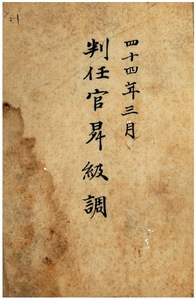 四十四年三月
判任官昇級調